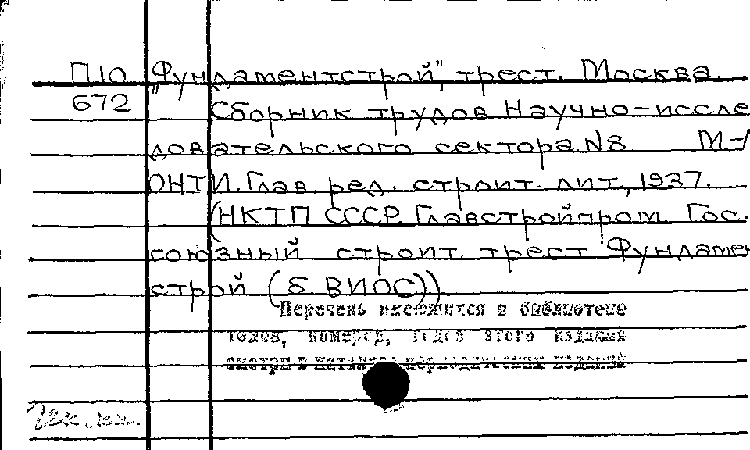 П10 „Фундаментстрой", трест. Москва.
672 Сборник трудов Научно-иссле
довательского сектора N8 М-
ОНТИ. Глав. ред. строит. лит., 1937.
(НКТП СССР. Главстройпром. Гос.
союзный строит. трест "Фундамен
строй (б. ВИОС)).
Перечень имеющихся в библиотеке
годов, номеров, этого издания